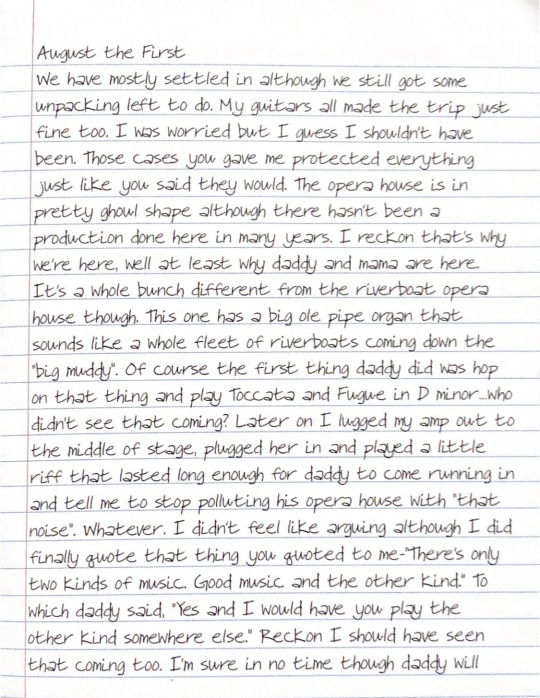 August the First
We have mostly settled in although we still got some
unpacking left to do. My guitars all made the trip just
fine too. I was worried but I guess I shouldn't have
been. Those cases you gave me protected everything
just like you said they would. The opera house is in
pretty ghoul shape although there hasn't been a
production done here in many years. I reckon that's why
we're here, well at least why daddy and mama are here.
It's a whole bunch different from the riverboat opera
house though. This one has a big ole pipe organ that
sounds like a whole fleet of riverboats coming down the
"big muddy". Of course the first thing daddy did was hop
on that thing and play Toccata and Fugue in D minor...who
didn't see that coming? Later on I lugged my amp out to
the middle of stage, plugged her in and played a little
riff that lasted long enough for daddy to come running in
and tell me to stop polluting his opera house with "that
noise". Whatever. I didn't feel like arguing although I did
finally quote that thing you quoted to me-"There's only
two kinds of music. Good music and the other kind." To
which daddy said, "Yes and I would have you play the
other kind somewhere else." Reckon I should have seen
that coming too. I'm sure in no time though daddy will